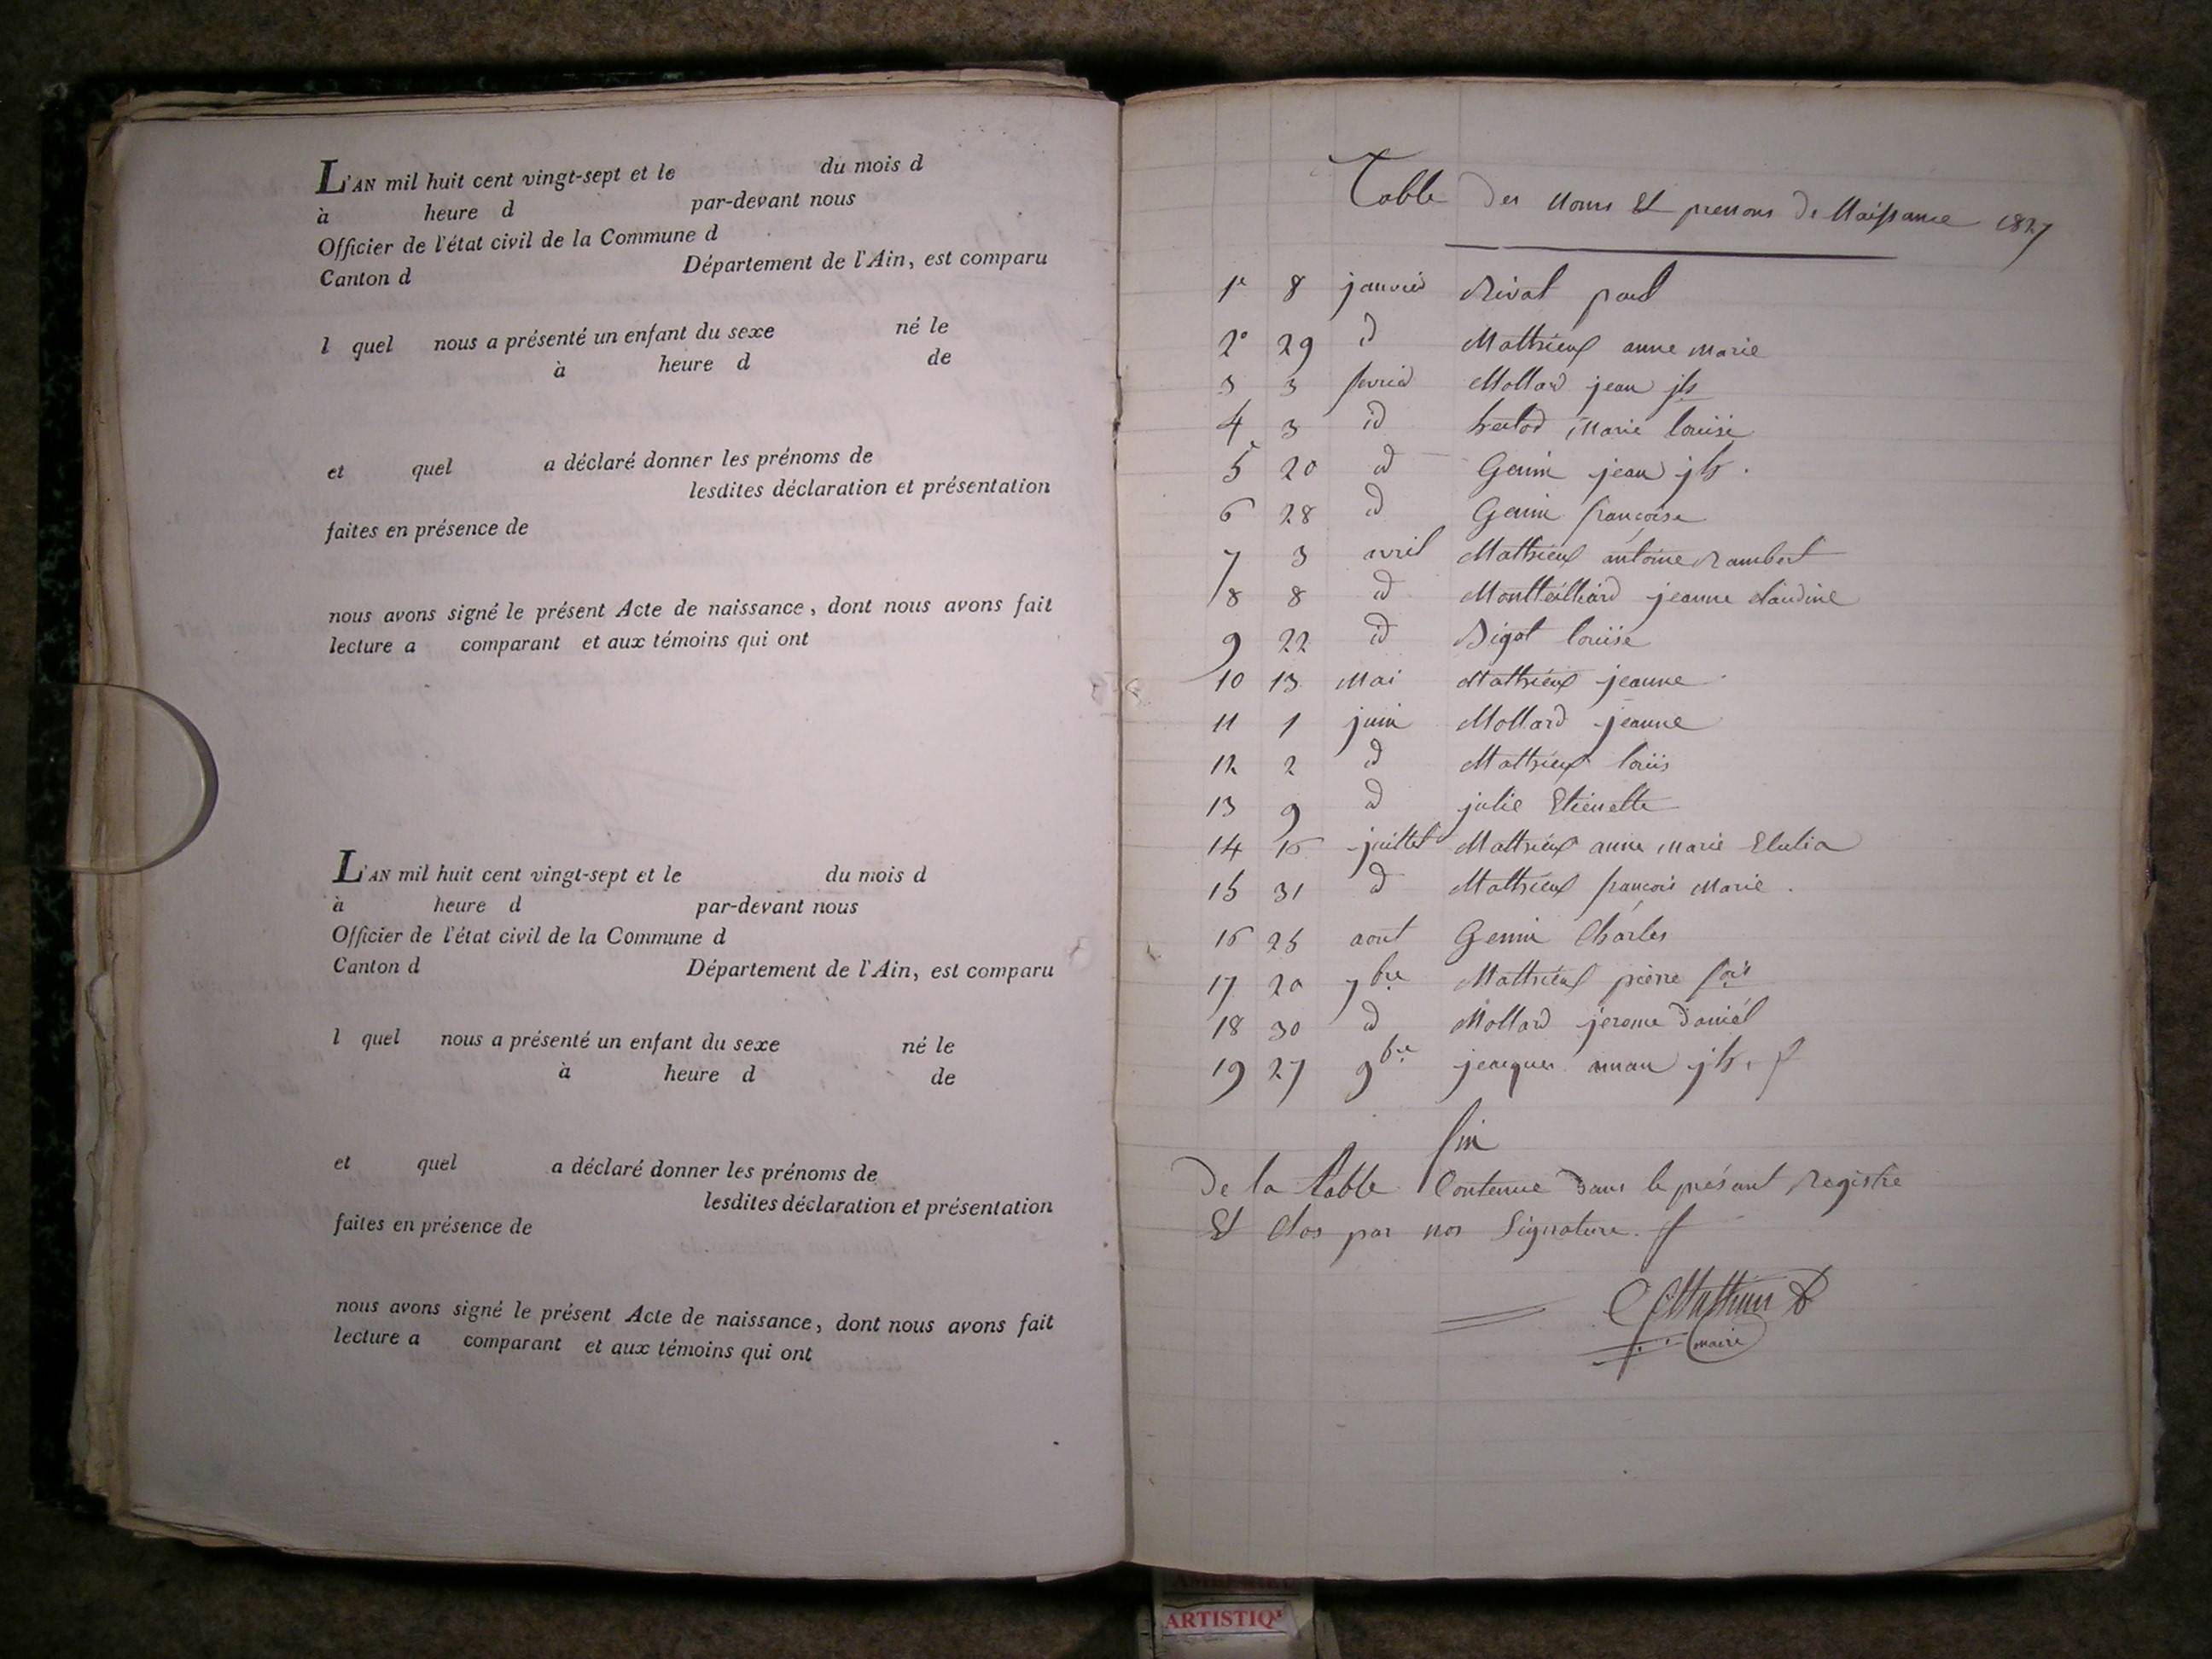 L'AN mil huit cent vingt-sept et le du mois d
à heure d par-devant nous
Officier de l'état civil de la Commune d
Canton d Département de l'Ain, est comparu
l quel nous a présenté un enfant du sexe né le
à heure d de
et quel a déclaré donner les prénoms de
lesdites déclaration et présentation
faites en présence de
nous avons signé le présent Acte de naissance, dont nous avons fait
lecture a comparant et aux témoins qui ont
L'AN mil huit cent vingt-sept et le du mois d
à heure d par-devant nous
Officier de l'état civil de la Commune d
Canton d Département de l'Ain, est comparu
l quel nous a présenté un enfant du sexe né le
à heure d de
et quel a déclaré donner les prénoms de
lesdites déclaration et présentation
faites en présence de
nous avons signé le présent Acte de naissance, dont nous avons fait
lecture a comparant et aux témoins qui ont
Table des Noms Et prenons de Naissance 1827
1e 8 janvier Rivat paul
2e 29 d Mathieux anne marie
3 3 fevrier Mollard jean jh
4 3 id Marie louise
5 20 d Genin jean jh.
6 28 d Genin françoise
7 3 avril Mathieux antoine rambert
8 8 d Monttéilliard jeanne claudine
9 22 id louise
10 13 Mai Mathieux jeanne
11 1 juin Mollard jeanne
12 2 d Mathieux louis
13 9 d julie Etienette
14 16 juillet Mathieux anne marie
15 31 d Mathieux françois Marie.
16 25 aout Genin Charles
17 20 7bre Mathieux pierre fois
18 30 d Mollard jerome daniél
19 27 9bre jh.
fin
De la table Contenue dans le présant Registre
Et Clos par nos Signature.
Mathieu
maire
ARTISTIQ